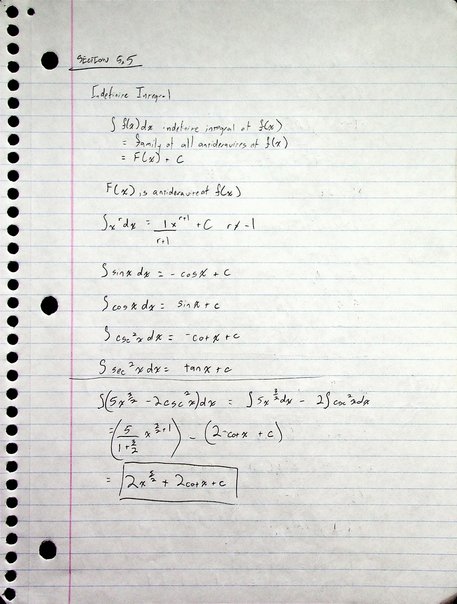 SECTION 5.5
Indefinite Integral
∫ f(x)dx indefinite integral of f(x)
= family of all antiderivatives of f(x)
= F(x) + C
F(x) is antiderivative of f(x)
∫x^r dx = 1x^(r+1)/(r+1) + C   r≠-1
∫ sinx dx = - cosx + c
∫ cosx dx = sinx + c
∫ csc²x dx = -cotx + c
∫ sec²x dx = tanx + c
∫(5x^(3/2) - 2csc²x)dx = ∫5x^(3/2)dx - 2∫csc²xdx
= (5/(1+3/2) x^(3/2+1)) - (2-cotx + c)
= 2x^(5/2) + 2cotx + c